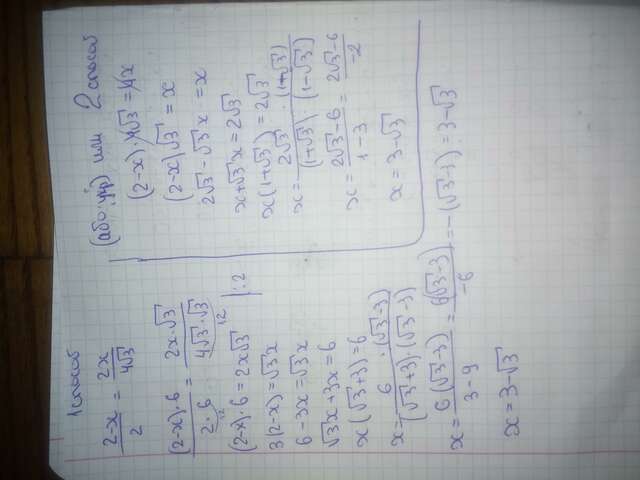 1 способ
(2-x)/2 = 2x/4√3
(2-x)·6/2·6 = 2x·√3/4√3·√3
12 12
(2-x)·6 = 2x√3 |:2
3(2-x) = √3x
6-3x = √3x
√3x+3x = 6
x(√3+3) = 6
x = 6·(√3-3)/(√3+3)·(√3-3)
x = 6(√3-3)/3-9 = 6(√3-3)/-6 = -(√3-3) = 3-√3
x = 3-√3
(або) или 2 способ
(2-x)·4√3 = 4x
(2-x)√3 = x
2√3-√3x = x
x+√3x = 2√3
x(1+√3) = 2√3
x = 2√3·(1-√3)/(1+√3)(1-√3)
x = 2√3-6/1-3 = 2√3-6/-2
x = 3-√3